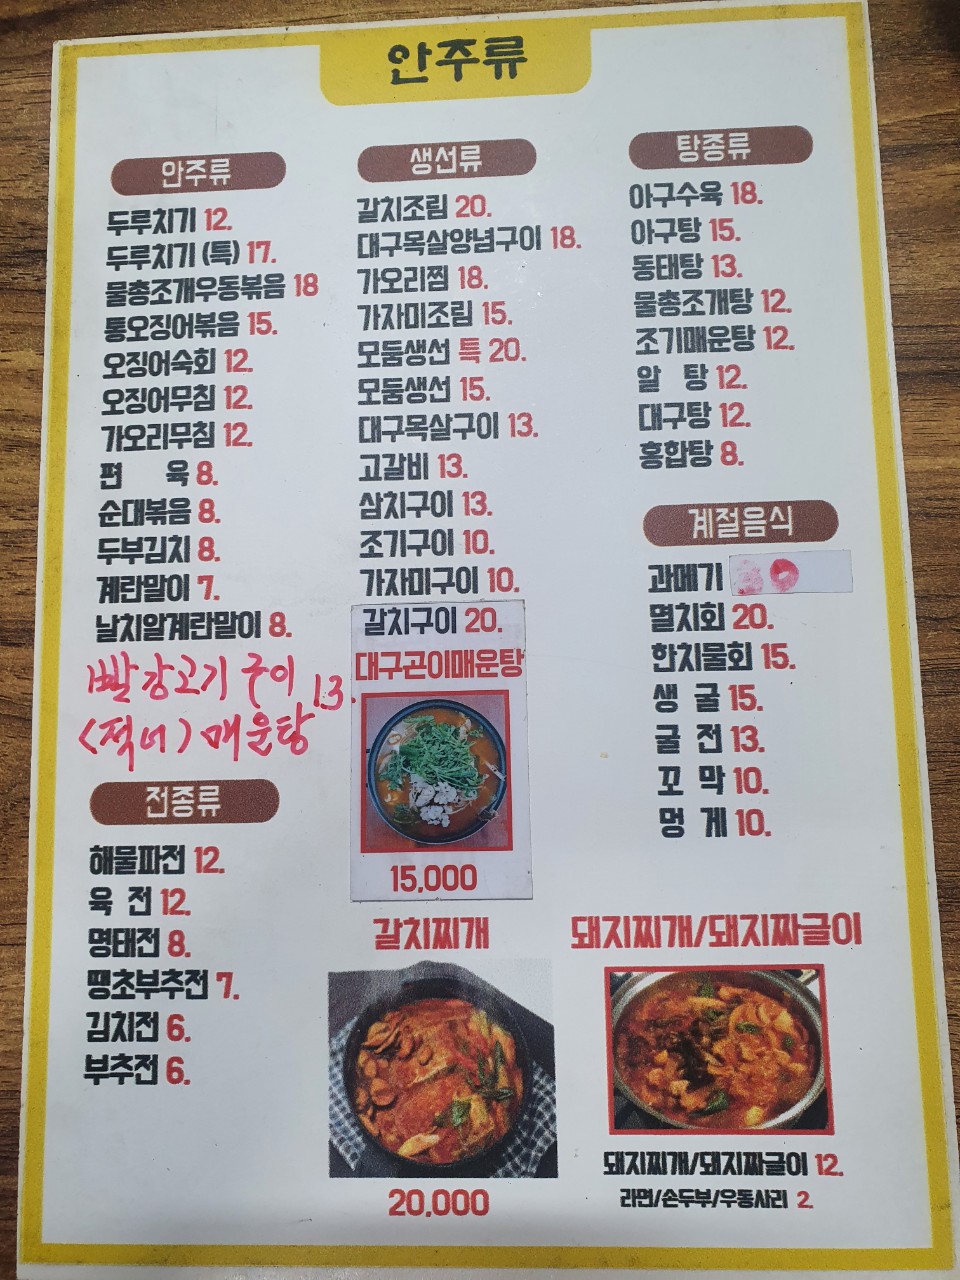 안주류
안주류
두루치기 12.
두루치기 (특) 17.
물총조개우동볶음 18
통오징어볶음 15.
오징어숙회 12.
오징어무침 12.
가오리무침 12.
편 육 8.
순대볶음 8.
두부김치 8.
계란말이 7.
날치알계란말이 8.
빨강고기 구이 13.
<적어> 매운탕
전종류
해물파전 12.
육 전 12.
명태전 8.
땡초부추전 7.
김치전 6.
부추전 6.
생선류
갈치조림 20.
대구목살양념구이 18.
가오리찜 18.
가자미조림 15.
모둠생선 특 20.
모둠생선 15.
대구목살구이 13.
고갈비 13.
삼치구이 13.
조기구이 10.
가자미구이 10.
갈치구이 20.
대구곤이매운탕
15,000
갈치찌개
20,000
탕종류
아구수육 18.
아구탕 15.
동태탕 13.
물총조개탕 12.
조기매운탕 12.
알 탕 12.
대구탕 12.
홍합탕 8.
계절음식
과메기
멸치회 20.
한치물회 15.
생 굴 15.
굴 전 13.
꼬 막 10.
멍 게 10.
돼지찌개/돼지짜글이
돼지찌개/돼지짜글이 12.
라면/손두부/우동사리 2.